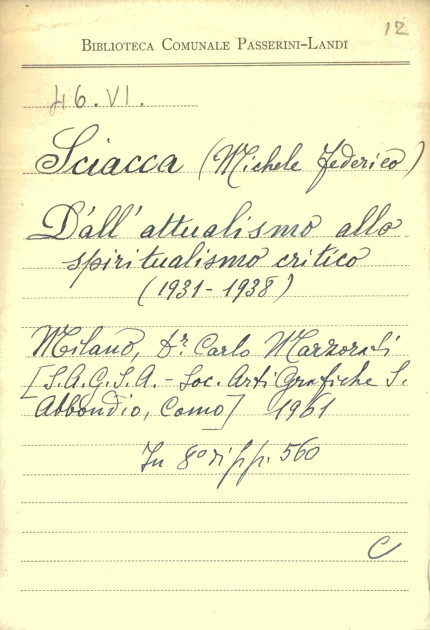 12
BIBLIOTECA COMUNALE PASSERINI-LANDI
46.VI.
Sciacca (Michele Federico)
Dall'attualismo allo
spiritualismo critico
(1931-1938)
Milano, Dr. Carlo Marzorati
[S.A.G.S.A. - Soc. Arti Grafiche S.
Abbondio, Como] 1961
In 8° di pp. 560
C